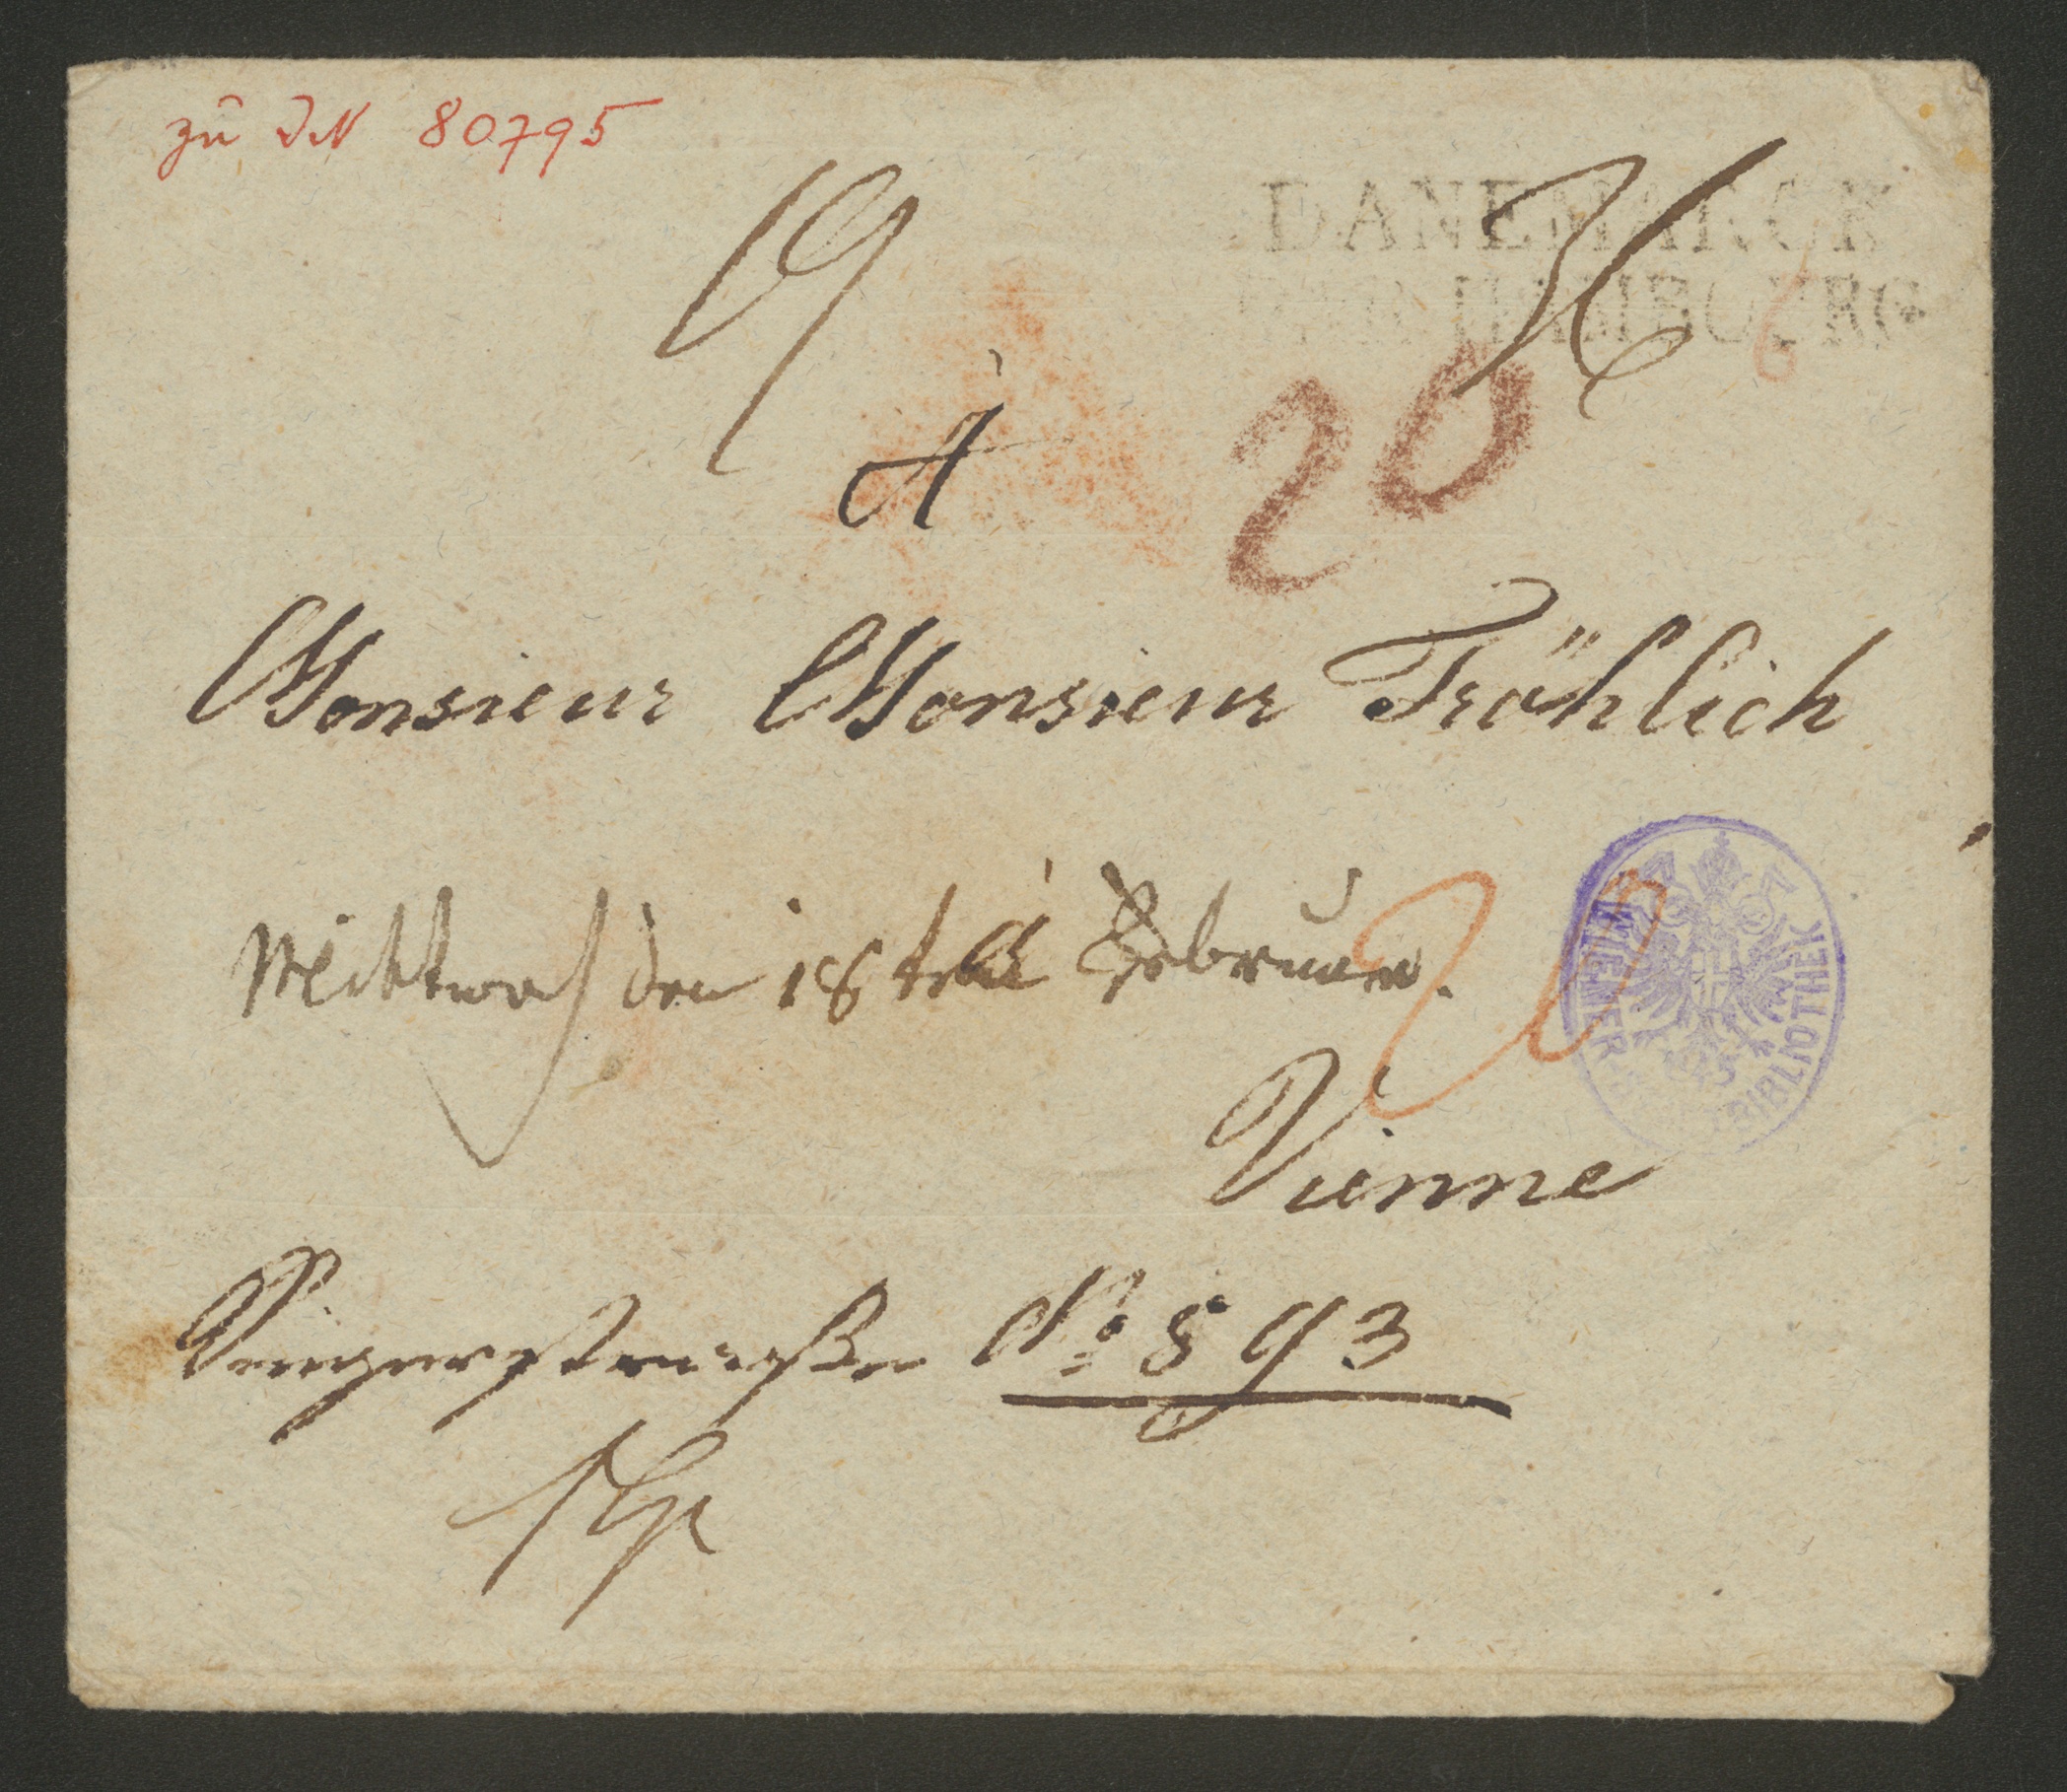 zu IN 80795
19
36
DANEMARCK
PAR HAMBOURG
6
A
20
Monsieur Monsieur Fröhlich
Mittwoch den 18ten Februar.
20
WIENER BIBLIOTHEK
Vienne
Singerstraße No 893